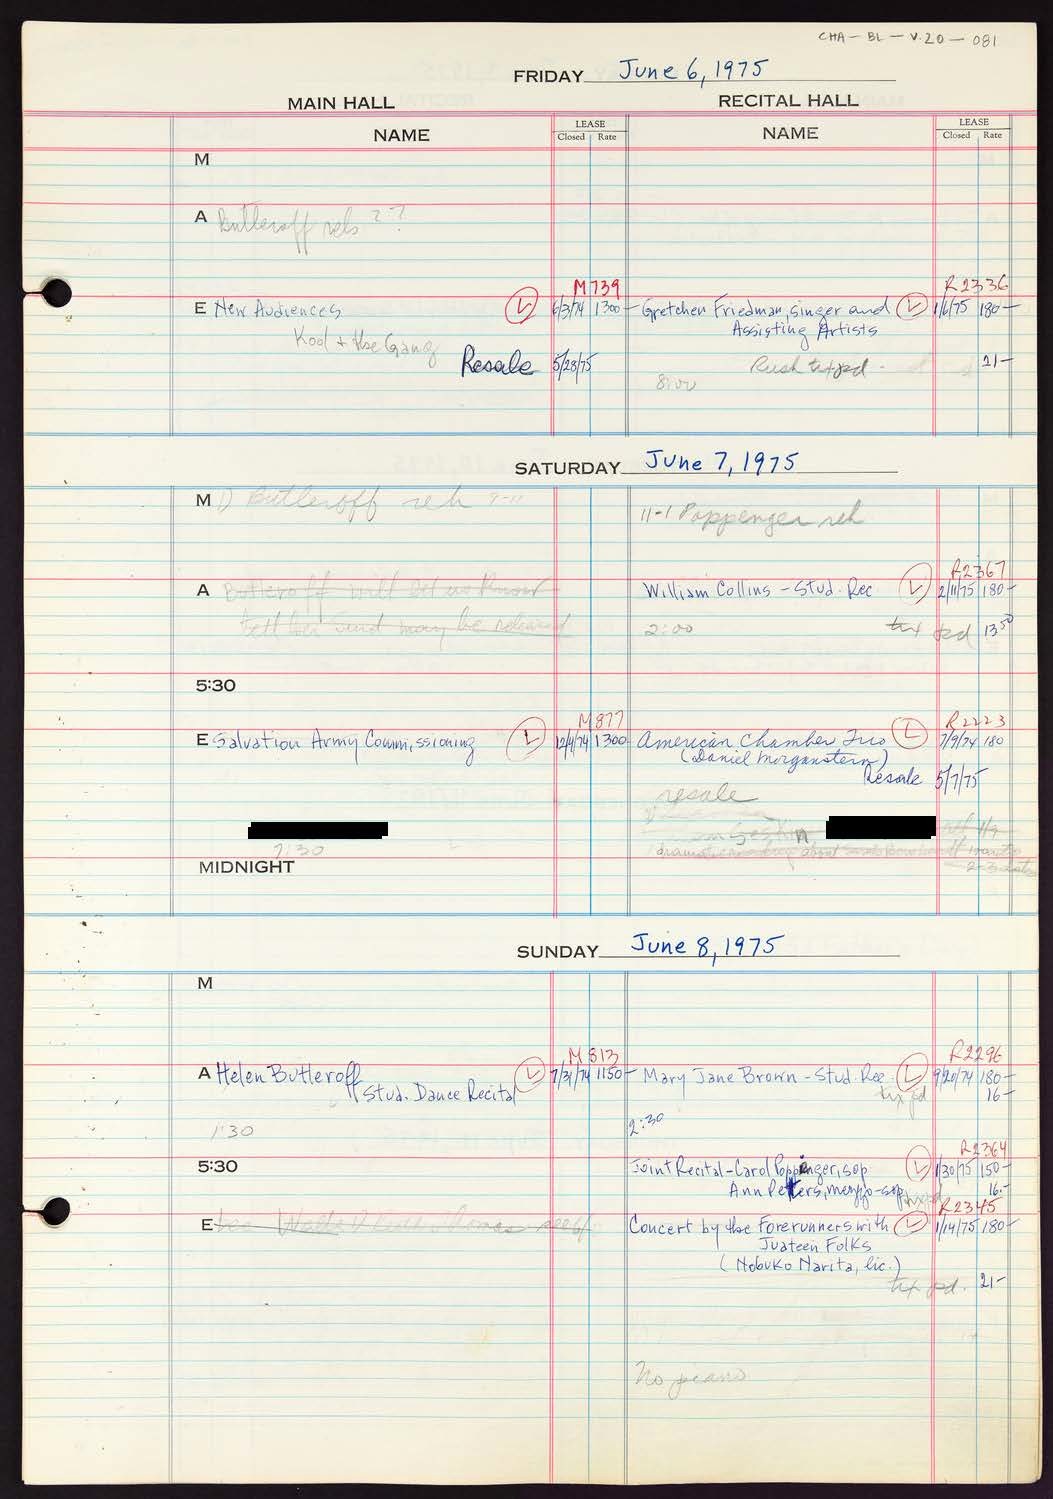 CHA-BL-V.20-081
FRIDAY June 6, 1975
MAIN HALL RECITAL HALL
NAME LEASE Closed Rate NAME LEASE Closed Rate
M
A Butleroff rehs ??
M739 R2336
E New Audiences L 6/3/74 1300- Gretchen Friedman, singer and L 1/6/75 180-
Kool + the Gang Assisting Artists
Resale 5/28/75 Rush tix pd - 21-
8:00
SATURDAY June 7, 1975
M Butleroff reh 9-11 11-1 Poppenger reh
R2367
A Butleroff will let us know William Collins - Stud. Rec. L 2/11/75 180-
may be released 2:00 tix pd 13 50
5:30
M877 R2223
E Salvation Army Commissioning L 12/4/74 1300- American Chamber Trio L 7/9/74 180
(Daniel Morganstern)
Resale 5/7/75
resale
7:30 about
MIDNIGHT
SUNDAY June 8, 1975
M
M813 R2296
A Helen Butleroff L 7/31/74 1150- Mary Jane Brown - Stud. Rec. L 9/20/74 180-
Stud. Dance Recital tix pd 16-
1:30 2:30
R2364
5:30 Joint Recital-Carol Poppenger, sop L 1/30/75 150-
Ann Petters, mezzo-sop tix pd 16.-
R2345
E Concert by the Forerunners with L 1/14/75 180-
Juateen Folks
(Nobuko Narita, lic.)
tix pd. 21-
No piano